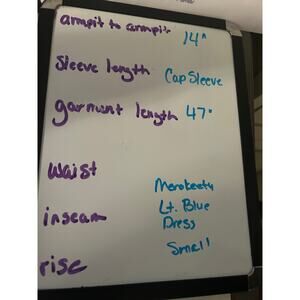 armpit to armpit 14"
Sleeve length Cap Sleeve
garment length 47"
waist
inseam
rise
Merokeety
Lt. Blue
Dress
Small